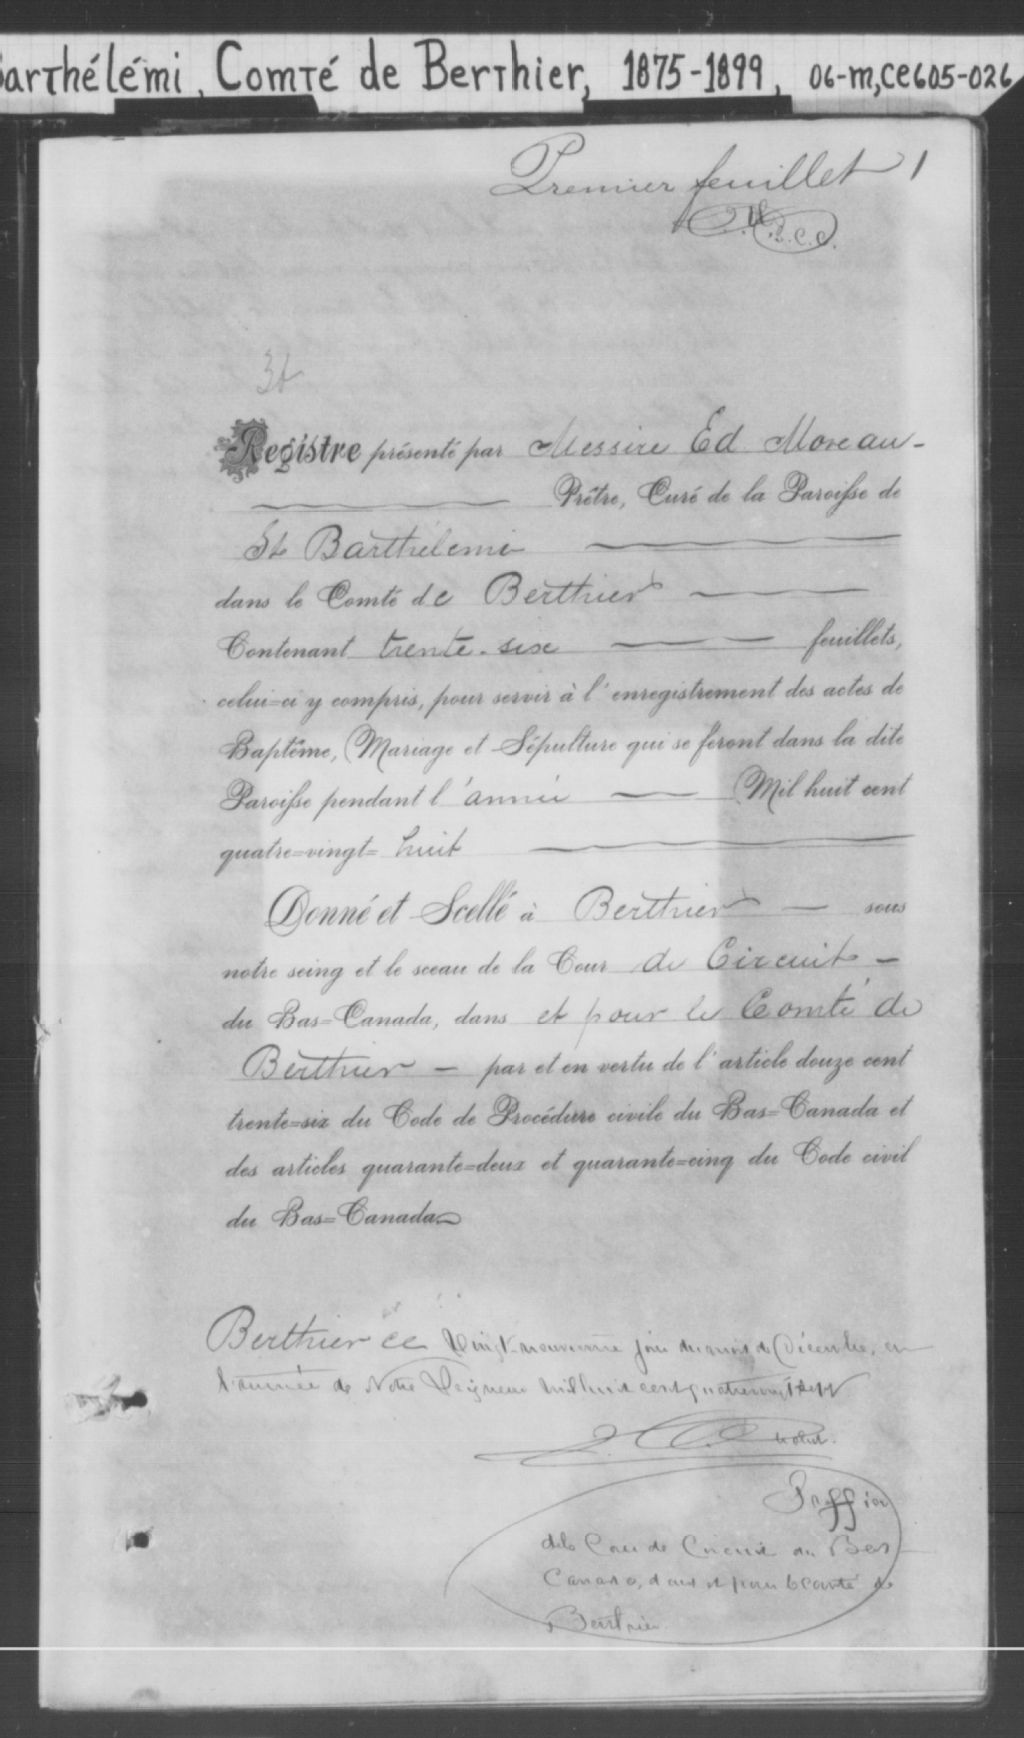 Barthélémi, Comté de Berthier, 1875-1899, 06-M,CE605-026
Premier feuillet 1
G.C.C.
Registre présenté par Messire Ed Moreau -
Prêtre, Curé de la Paroisse de
St Barthélemi
dans le Comté de Berthier
Contenant trente-six feuillets,
celui=ci y compris, pour servir à l'enregistrement des actes de
Baptême, Mariage et Sépulture qui se feront dans la dite
Paroisse pendant l'année Mil huit cent
quatre=vingt= huit
Donné et Scellé à Berthier — sous
notre seing et le sceau de la Cour de Circuit -
du Bas=Canada, dans et pour le Comté de
Berthier - par et en vertu de l'article douze cent
trente=six du Code de Procédure civile du Bas=Canada et
des articles quarante=deux et quarante=cinq du Code civil
du Bas=Canada
Berthier ce Vingt-neuvieme jour du mois de Décembre, en
l'année de Notre Seigneur mil huit cent quatre vingt sept
Greffier
de la Cour de Circuit du Bas
Canada, dans et pour le Comté de
Berthier